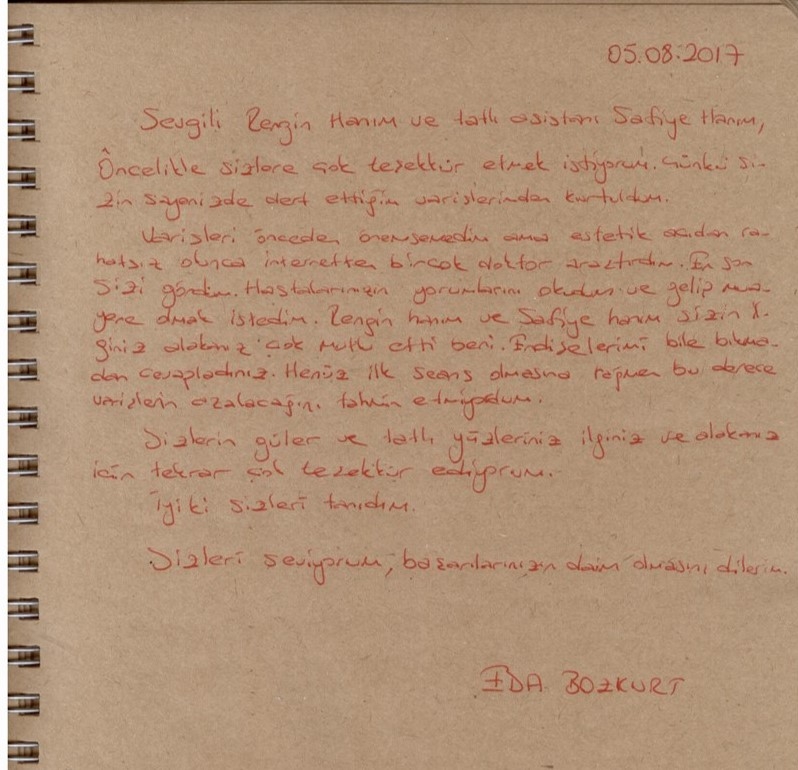 05.08.2017
Sevgili Rengin Hanım ve tatlı asistanı Safiye Hanım,
Öncelikle sizlere çok teşekkür etmek istiyorum. Çünkü si-
zin sayenizde dert ettiğim varislerimden kurtuldum.
Varisleri önceden önemsemedim ama estetik açıdan ra-
hatsız olunca internetten birçok doktor araştırdım. En son
Sizi gördüm. Hastalarınızın yorumlarını okudum ve gelip mua-
yene olmak istedim. Rengin hanım ve Safiye hanım sizin il-
giniz alakanız çok mutlu etti beni. Endişelerimi bile bıkma-
dan cevapladınız. Henüz ilk seans olmasına rağmen bu derece
varislerin azalacağını tahmin etmiyordum.
Sizlerin güler ve tatlı yüzleriniz ilginiz ve alakanız
için tekrar çok teşekkür ediyorum.
İyiki sizleri tanıdım.
Sizleri seviyorum, başarılarınızın daim olmasını dilerim.
EDA BOZKURT